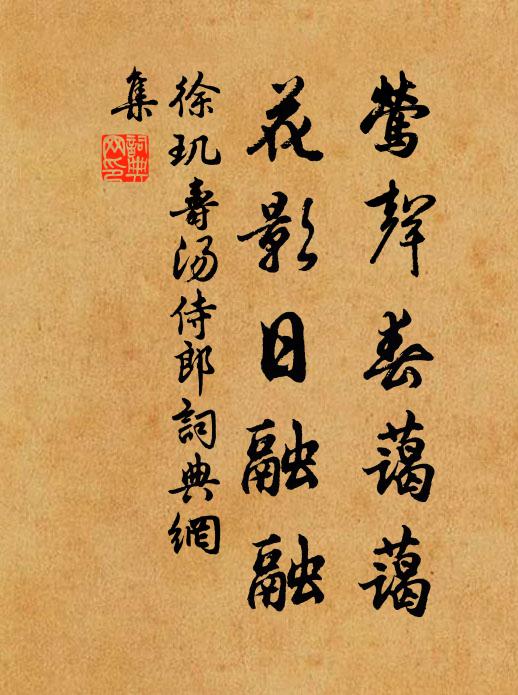 鶯聲春藹藹
花影日融融
徐玑壽湯侍郎詞典網
集
詞典網印